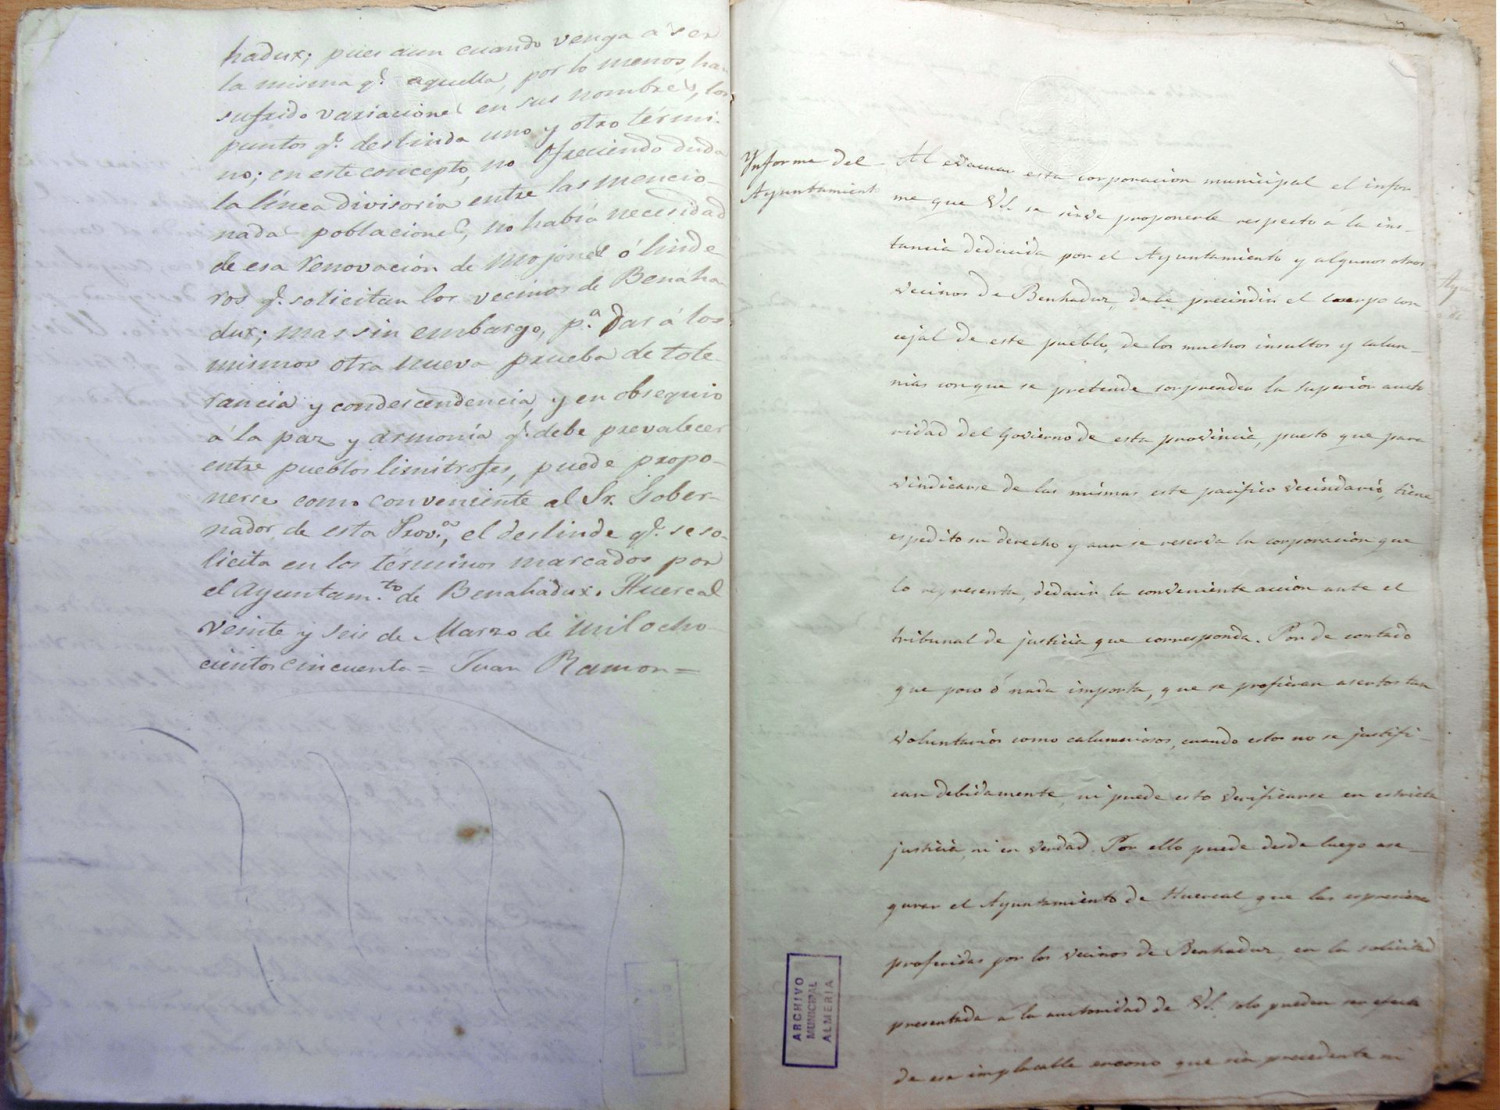 hadux; pues aun cuando venga a ser
la misma q.e aquella, por lo menos, han
sufrido variaciones en sus nombres, los
puntos q.e deslinda uno y otro térmi-
no; en este concepto, no ofreciendo duda
la línea divisoria entre las mencio-
nadas poblaciones, no había necesidad
de esa renovación de mojones ó linde
ros q.e solicitan los vecinos de Benaha
dux; mas sin embargo, p.a dar á los
mismos otra nueva prueba de tole-
rancia y condescendencia, y en obsequio
á la paz y armonía q.e debe prevalecer
entre pueblos limítrofes, puede propo-
nerse como conveniente al Sr. Gober-
nador de esta Prov.a, el deslinde q.e se so-
licita en los términos marcados por
el Ayuntam.to de Benahadux. Huercal
veinte y seis de Marzo de mil ocho-
cientos cincuenta = Juan Ramon =
Ynforme del
Ayuntamient
Al evacuar esta corporacion municipal el infor
me que VS. se sirve proponerle respecto á la ins-
tancia deducida por el Ayuntamiento y algunos otros
vecinos de Benhadux, debe precindir el cuerpo con
cejal de este pueblo, de los muchos insultos y calum-
nias con que se pretende sorprender la superior auto
ridad del Govierno de esta provincia, puesto que para
vindicarse de las mismas este pacifico vecindario, tiene
espedito su derecho y aun se reserva la corporacion que
lo representa, deducir la conveniente accion ante el
tribunal de justicia que corresponda. Por de contado
que poco ó nada importa, que se profieran asertos tan
voluntarios como calumniosos, cuando estos no se justifi-
can debidamente, ni puede esto verificarse en estricta
justicia, ni en verdad. Por ello puede desde luego ase-
gurar el Ayuntamiento de Huercal que las espresiones
proferidas por los vecinos de Benhadux, en la solicitud
presentada á la autoridad de VS. solo pueden ser efecto
de ese implacable encono que sin precedente ni
ARCHIVO
MUNICIPAL
ALMERIA